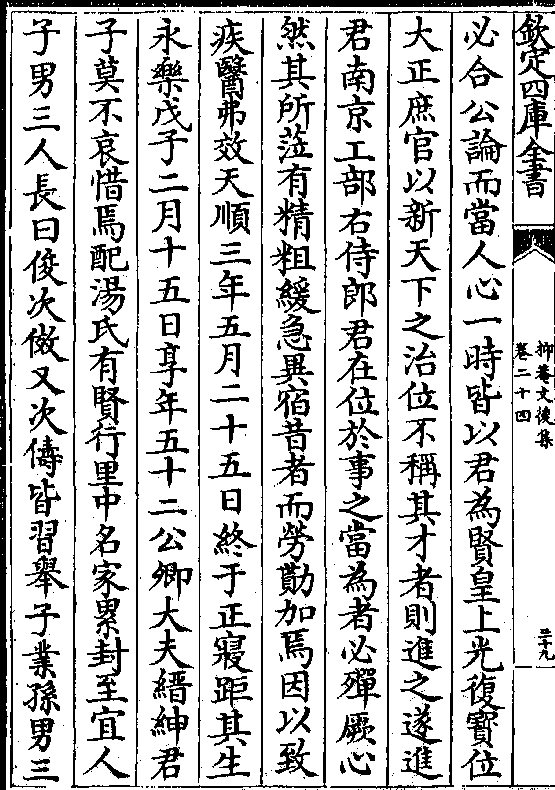 欽定四庫全書
抑菴文後集
卷二十四
三十九
必合公論而當人心一時皆以君為賢皇上光復寳位
大正庶官以新天下之治位不稱其才者則進之遂進
君南京工部右侍郎君在位於事之當為者必殫厥心
然其所蒞有精粗緩急異宿昔者而勞勩加焉因以致
疾醫弗效天順三年五月二十五日終于正寢距其生
永樂戊子二月十五日享年五十二公卿大夫縉紳君
子莫不哀惜焉配湯氏有賢行里中名家累封至宜人
子男三人長曰俊次倣又次儔皆習舉子業孫男三